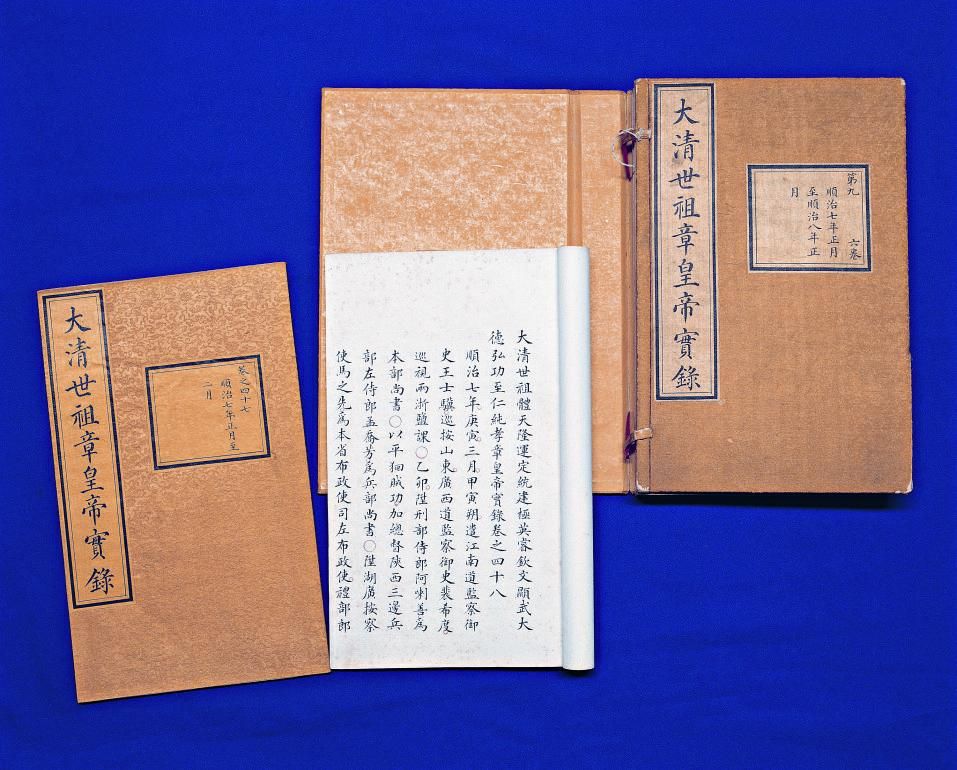 大清世祖章皇帝實錄
第九 六卷
順治七年正月
至順治八年正
月
大清世祖體天隆運定統建極英睿欽文顯武大
德弘功至仁純孝章皇帝實錄卷之四十八
順治七年庚寅三月甲寅朔遣江南道監察御
史王士驥巡按山東廣西道監察御史裴希度
巡視兩浙鹽課○乙卯陞刑部侍郎阿喇善為
本部尚書○以平狪賊功加總督陝西三邊兵
部左侍郎孟喬芳為兵部尚書○陞湖廣按察
使馬之先為本省布政使司左布政使禮部郎
大清世祖章皇帝實錄
卷之四十七
順治七年正月至
二月